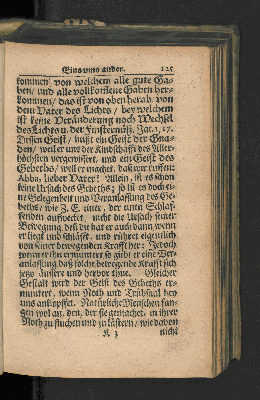 Eins ums ander. 125
kommen von welchem alle gute Ga-
ben/ und alle vollkom̃ene Gaben her-
kommen/ das ist von oben herab von
dem Vater des Lichts/ bey welchem
ist keine Veränderung noch Wechsel
des Lichts u. der Finsternüß. Jac. 1, 17.
Dessen Geist/ heißt ein Geist der Gna-
den/ weil er uns der Kindschafft des Aller-
höchsten vergewissert, und ein Geist des
Gebeths/ weil er machet, daß wir ruffen:
Abba, lieber Vater! Allein, ist es schon
keine Ursach des Gebeths; so ist es doch ei-
ne Gelegenheit und Veranlassung des Ge-
beths/ wie z. E. einer, der einen Schlaf-
fenden aufwecket, nicht die Ursach seiner
Bewegung deß du har er auch dann wenn
er liegt und schläfft, und rühret eigentlich
von seiner bewegenden Krafft her: Jedoch
wenn er ihn ermuntert so giebt er eine Ver-
anlassung daß solche bewegende Krafft sich
jetzo äusere und hervor thue. Gleicher
Gestalt wird der Geist des Gebeths er-
muntert, wenn Noth und Trübsaal bey
uns anklopffet. Natürliche Menschen fan-
gen wol an, den, der sie gemachet, in ihrer
Noth zu fluchen und zu lästern, wie davon
K 3 nicht